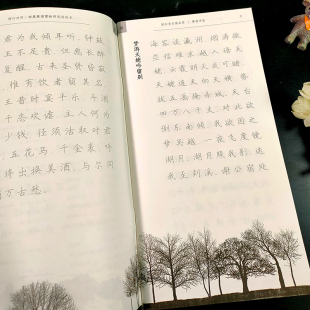 君为我倾耳听。钟鼓
玉不足贵,但愿长醉
复醒。古来圣贤皆寂
惟有饮者留其名。
王昔时宴平乐,斗
千恣欢谑。主人何为
少钱,径须沽取对君
五花马,千金裘,呼
将出换美酒,与尔同
万古愁。
梦游天姥吟留别
海客谈瀛洲,烟涛微
茫信难求。越人语天
姥,云霞明灭或可睹。
天姥连天向天横,势
拔五岳掩赤城。天台
四万八千丈,对此欲
倒东南倾。我欲因之
梦吴越,一夜飞度镜
湖月。湖月照我影,送
我至剡溪。谢公宿处